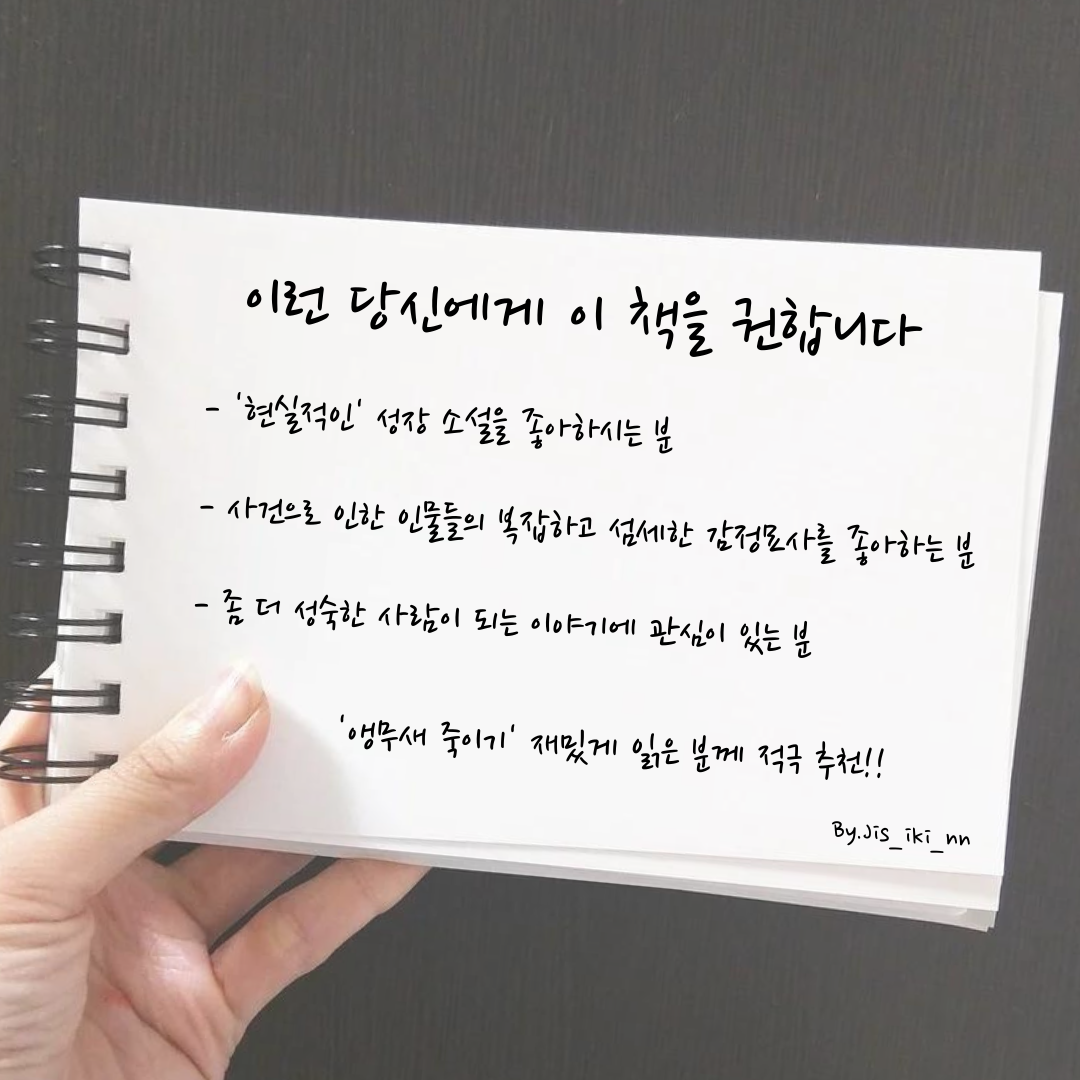 이런 당신에게 이 책을 권합니다
- '현실적인' 성장 소설을 좋아하시는 분
- 사건으로 인한 인물들의 복잡하고 섬세한 감정묘사를 좋아하는 분
- 좀 더 성숙한 사람이 되는 이야기에 관심이 있는 분
'앵무새 죽이기' 재밌게 읽은 분께 적극 추천!!
By.Jis_iki_nn